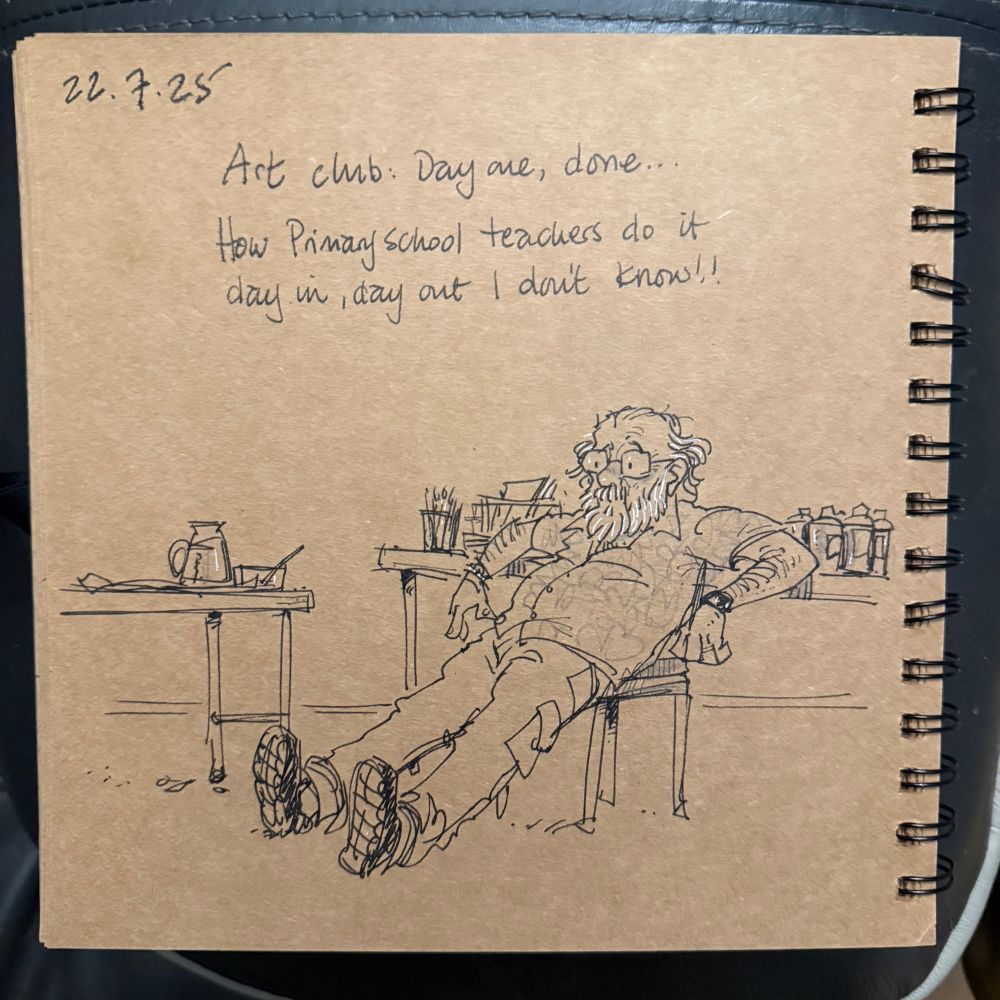 22.7.25
Art club: Day one, done...
How Primary school teachers do it
day in, day out I don't know!!